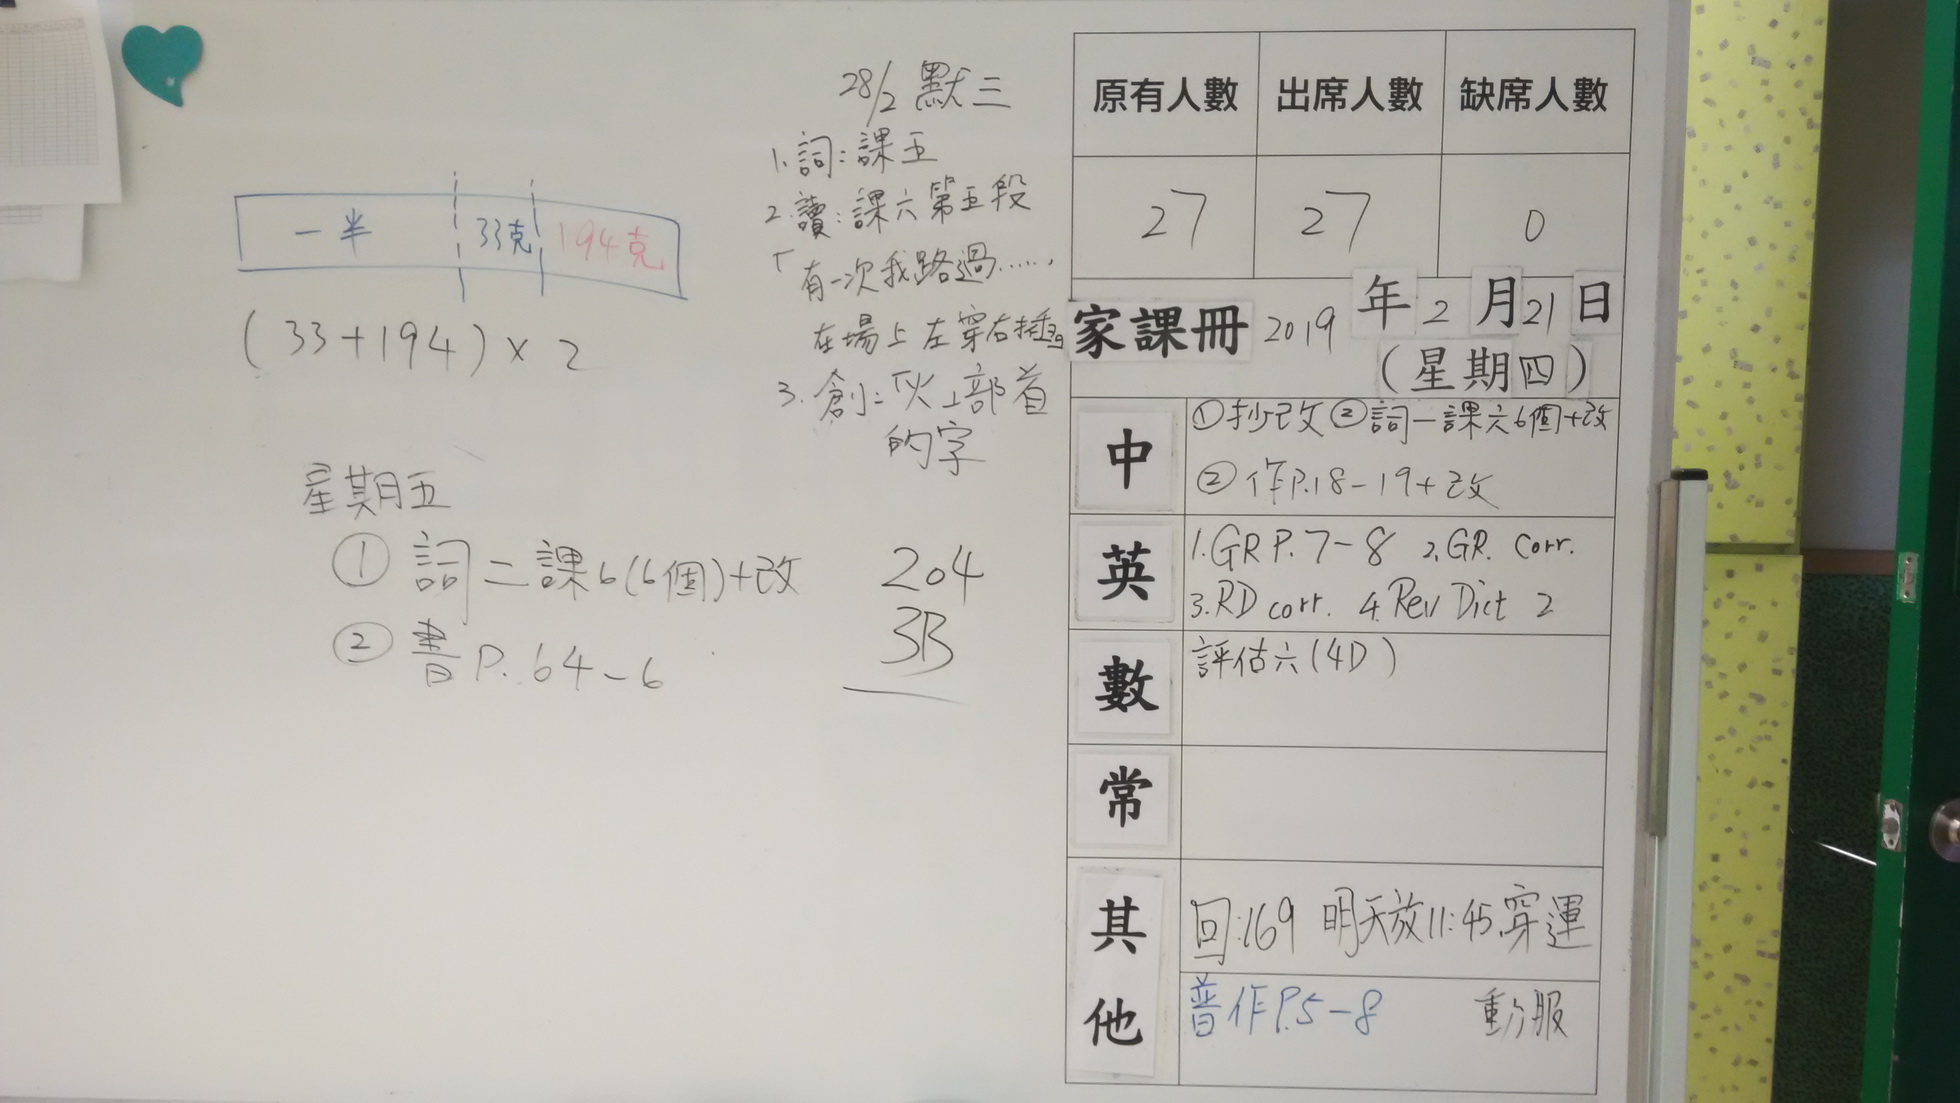 一半 33克 194克
(33+194)×2
星期五
① 詞二課6(6個)+改
② 書P.64-6
28/2 默三
1. 詞:課五
2. 讀:課六第五段
「有一次我路過......
在場上左穿右插」
3. 創:「火」部首
的字
204
3B
原有人數 出席人數 缺席人數
27 27 0
家課冊 2019年2月21日
(星期四)
中 ①抄改②詞一課六6個+改
② 作P.18-19+改
英 1.GR P.7-8 2.GR. Corr.
3.RD corr. 4.Rev Dict 2
數 評估六(4D)
常
其他 回:169 明天放11:45,穿運
普作P.5-8 動服